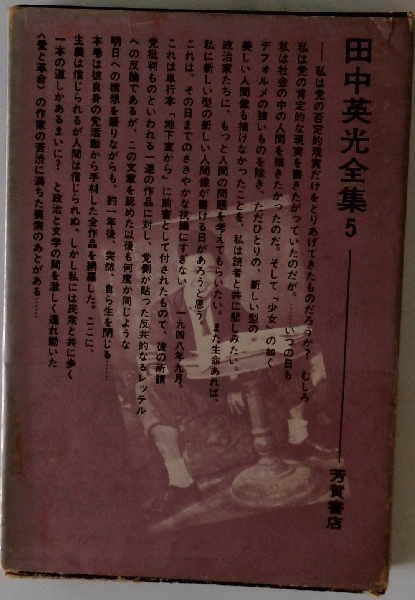 田中英光全集 5
芳賀書店
――私は党の否定的現実だけをとりあげてきたものだろうか? むしろ
私は党の肯定的な現実を書きたがっていたのだが。……いつの日も
私は社会の中の人間を描きたかったのだ。そして「少女」の如く
デフォルメの強いものを除き、ただひとりの、新しい型の
美しい人間像も描けなかったことを、私は読者と共に悲しみたい。
政治家たちに、もっと人間の問題を考えてもらいたい。また生命あれば、
私に新しい型の新しい人間像が書ける日があろうと思う。
これは、その日までのささやかな抗議にすぎない。 一九四八年九月。
これは単行本「地下室から」に前書として付されたもので、彼の所謂
党批判ものといわれる一連の作品に対し、党側が貼った反共的なるレッテル
への反論であるが、この文章を認めた以後も何度か同じような
明日への構想を語りながらも、約一年後、突然、自ら生を閉じる……
本巻は彼自身の党活動から手材した全作品を網羅した。ここに、
主義は信じられるが人間は信じられぬ、しかし私には民衆と共に歩く
一本の道しかあるまいに? と政治と文学の間を激しく揺れ動いた
《愛と革命》の作家の苦渋に満ちた模索のあとがある……